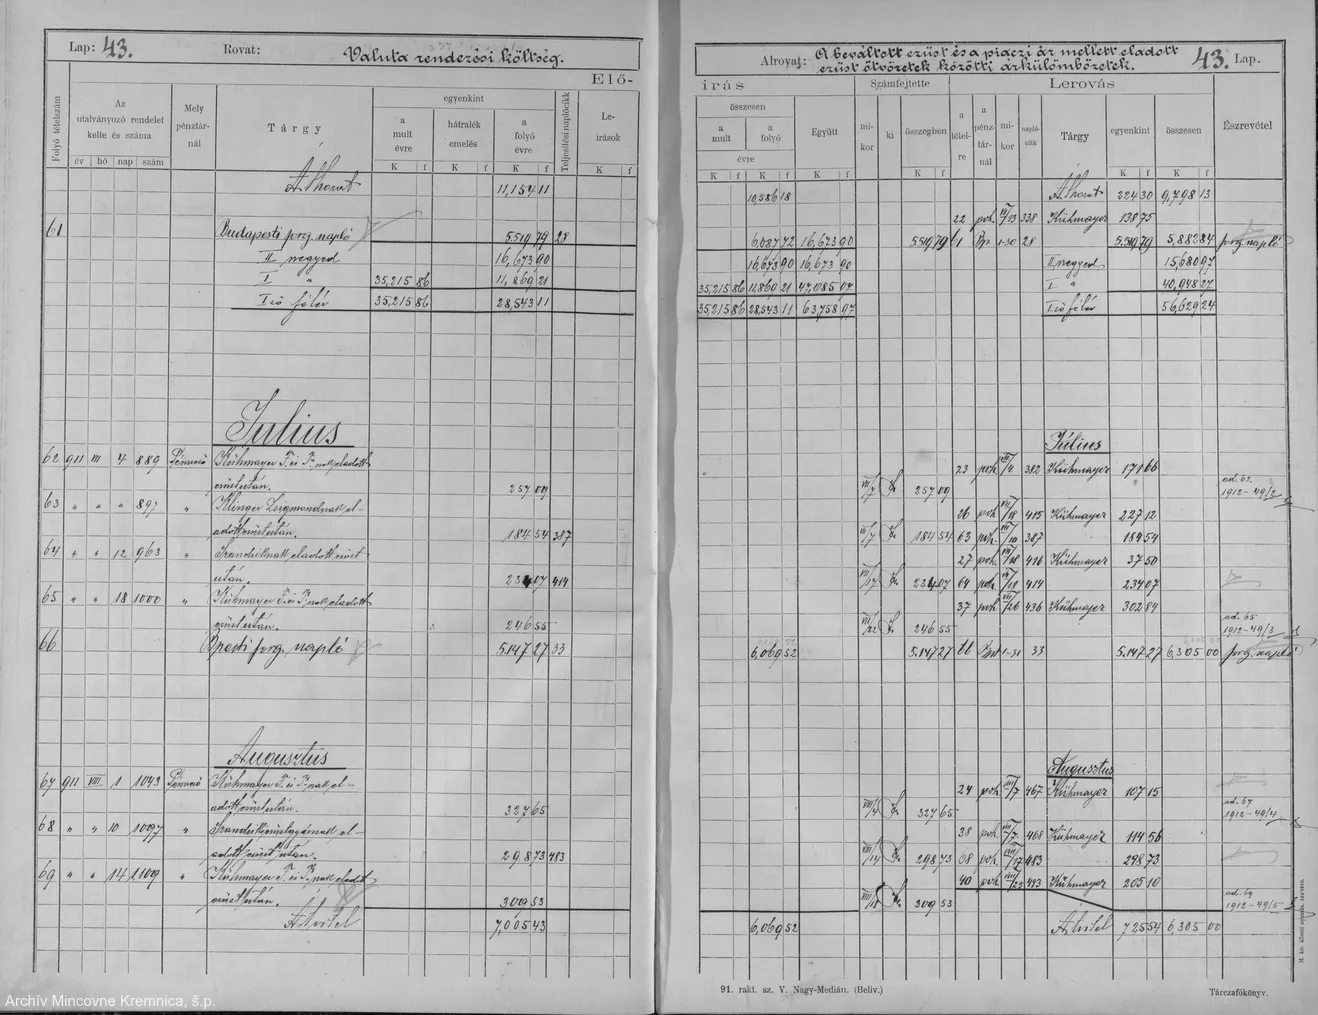 Lap: 43.
Rovat: Valuta rendezési költség.
Elő-
Folyó tételszám
Az utalványozó rendelet kelte és száma
év hó nap szám
Mely pénztárnál
Tárgy
egyenkint
a mult évre
hátralék emelés
a folyó évre
K f K f K f
Teljesítési naplócikk
Le-írások
K f
Áthozat 11,154 11
61 Budapesti forg. napló 5519 79 28
II negyed 16,673 90
I " 35,215 86 11,869 21
I ső félév 35,215 86 28,543 11
Július
62 911 VII 4 889 Kühmayer F. és F.nak eladott
ezüst után. 257 09
63 " " " 897 " Klinger Zsigmondnak el-
adott ezüst után. 184 54 387
64 " " 12 963 " eladott ezüst
után. 234 07 414
65 " " 18 1000 " Kühmayer F. és F.nak eladott
ezüst után. 246 55
66 Bpesti forg. napló 5147 27 33
Augusztus
67 911 VIII 1 1043 Kühmayer F. és F.nak el-
adott ezüst után. 327 65
68 " " 10 1097 " el-
adott ezüst után. 298 73 483
69 " " 14 1109 " Kühmayer F. és F.nak eladott
ezüst után. 309 53
Átvitel 7,005 43
Archív Mincovne Kremnica, š.p.
Alrovat: A beváltott ezüst és a piaczi ár mellett eladott
ezüst ötvözetek közötti árkülömbözetek.
43. Lap.
irás
Számfejtette
Lerovás
összesen
a mult a folyó
évre
Együtt
mi-kor
ki
összegben
a tétel-re
a pénz-tár-nál
mi-kor
napló-cikk
Tárgy
egyenkint
összesen
Észrevétel
K f K f K f K f K f K f
10,586 18 Áthozat 224 30 9,798 13
22 poh. VI/13 338 Kühmayer 138 75
6,087 72 16,673 90 5519 79 61 Bp. 1-30 28 5,519 79 5,882 84 forg. napló
16,673 90 16,673 90 II negyed 15,680 97
35,215 86 11,869 21 47,085 07 I " 40,948 27
35,215 86 28,543 11 63,758 97 I ső félév 56,629 24
Július
23 poh. VII/4 382 Kühmayer 171 66
VII/7 257 09 ad. 62. 1912-49/2
26 poh. VII/18 415 Kühmayer 227 12
VII/7 184 54 63 poh. VII/10 387 184 54
27 poh. VII/18 416 Kühmayer 37 50
VII/17 234 07 64 poh. VII/18 414 234 07
37 poh. VII/26 436 Kühmayer 302 84
VII/22 246 55 ad. 65 1912-49/3
6,069 52 5147 27 66 1-31 33 5,147 27 6,305 00 forg. napló
Augusztus
24 poh. VIII/7 467 Kühmayer 107 15
VIII/4 327 65 ad. 67 1912-49/4
38 poh. VIII/7 468 Kühmayer 114 56
VIII/14 298 73 68 poh. VIII/17 483 298 73
40 poh. VIII/22 493 Kühmayer 205 10
VIII/18 309 53 ad. 69 1912-49/5
6,069 52 Átvitel 725 54 6,305 00
91. rakt. sz. V. Nagy-Medián. (Beliv.)
Tárczafőkönyv.